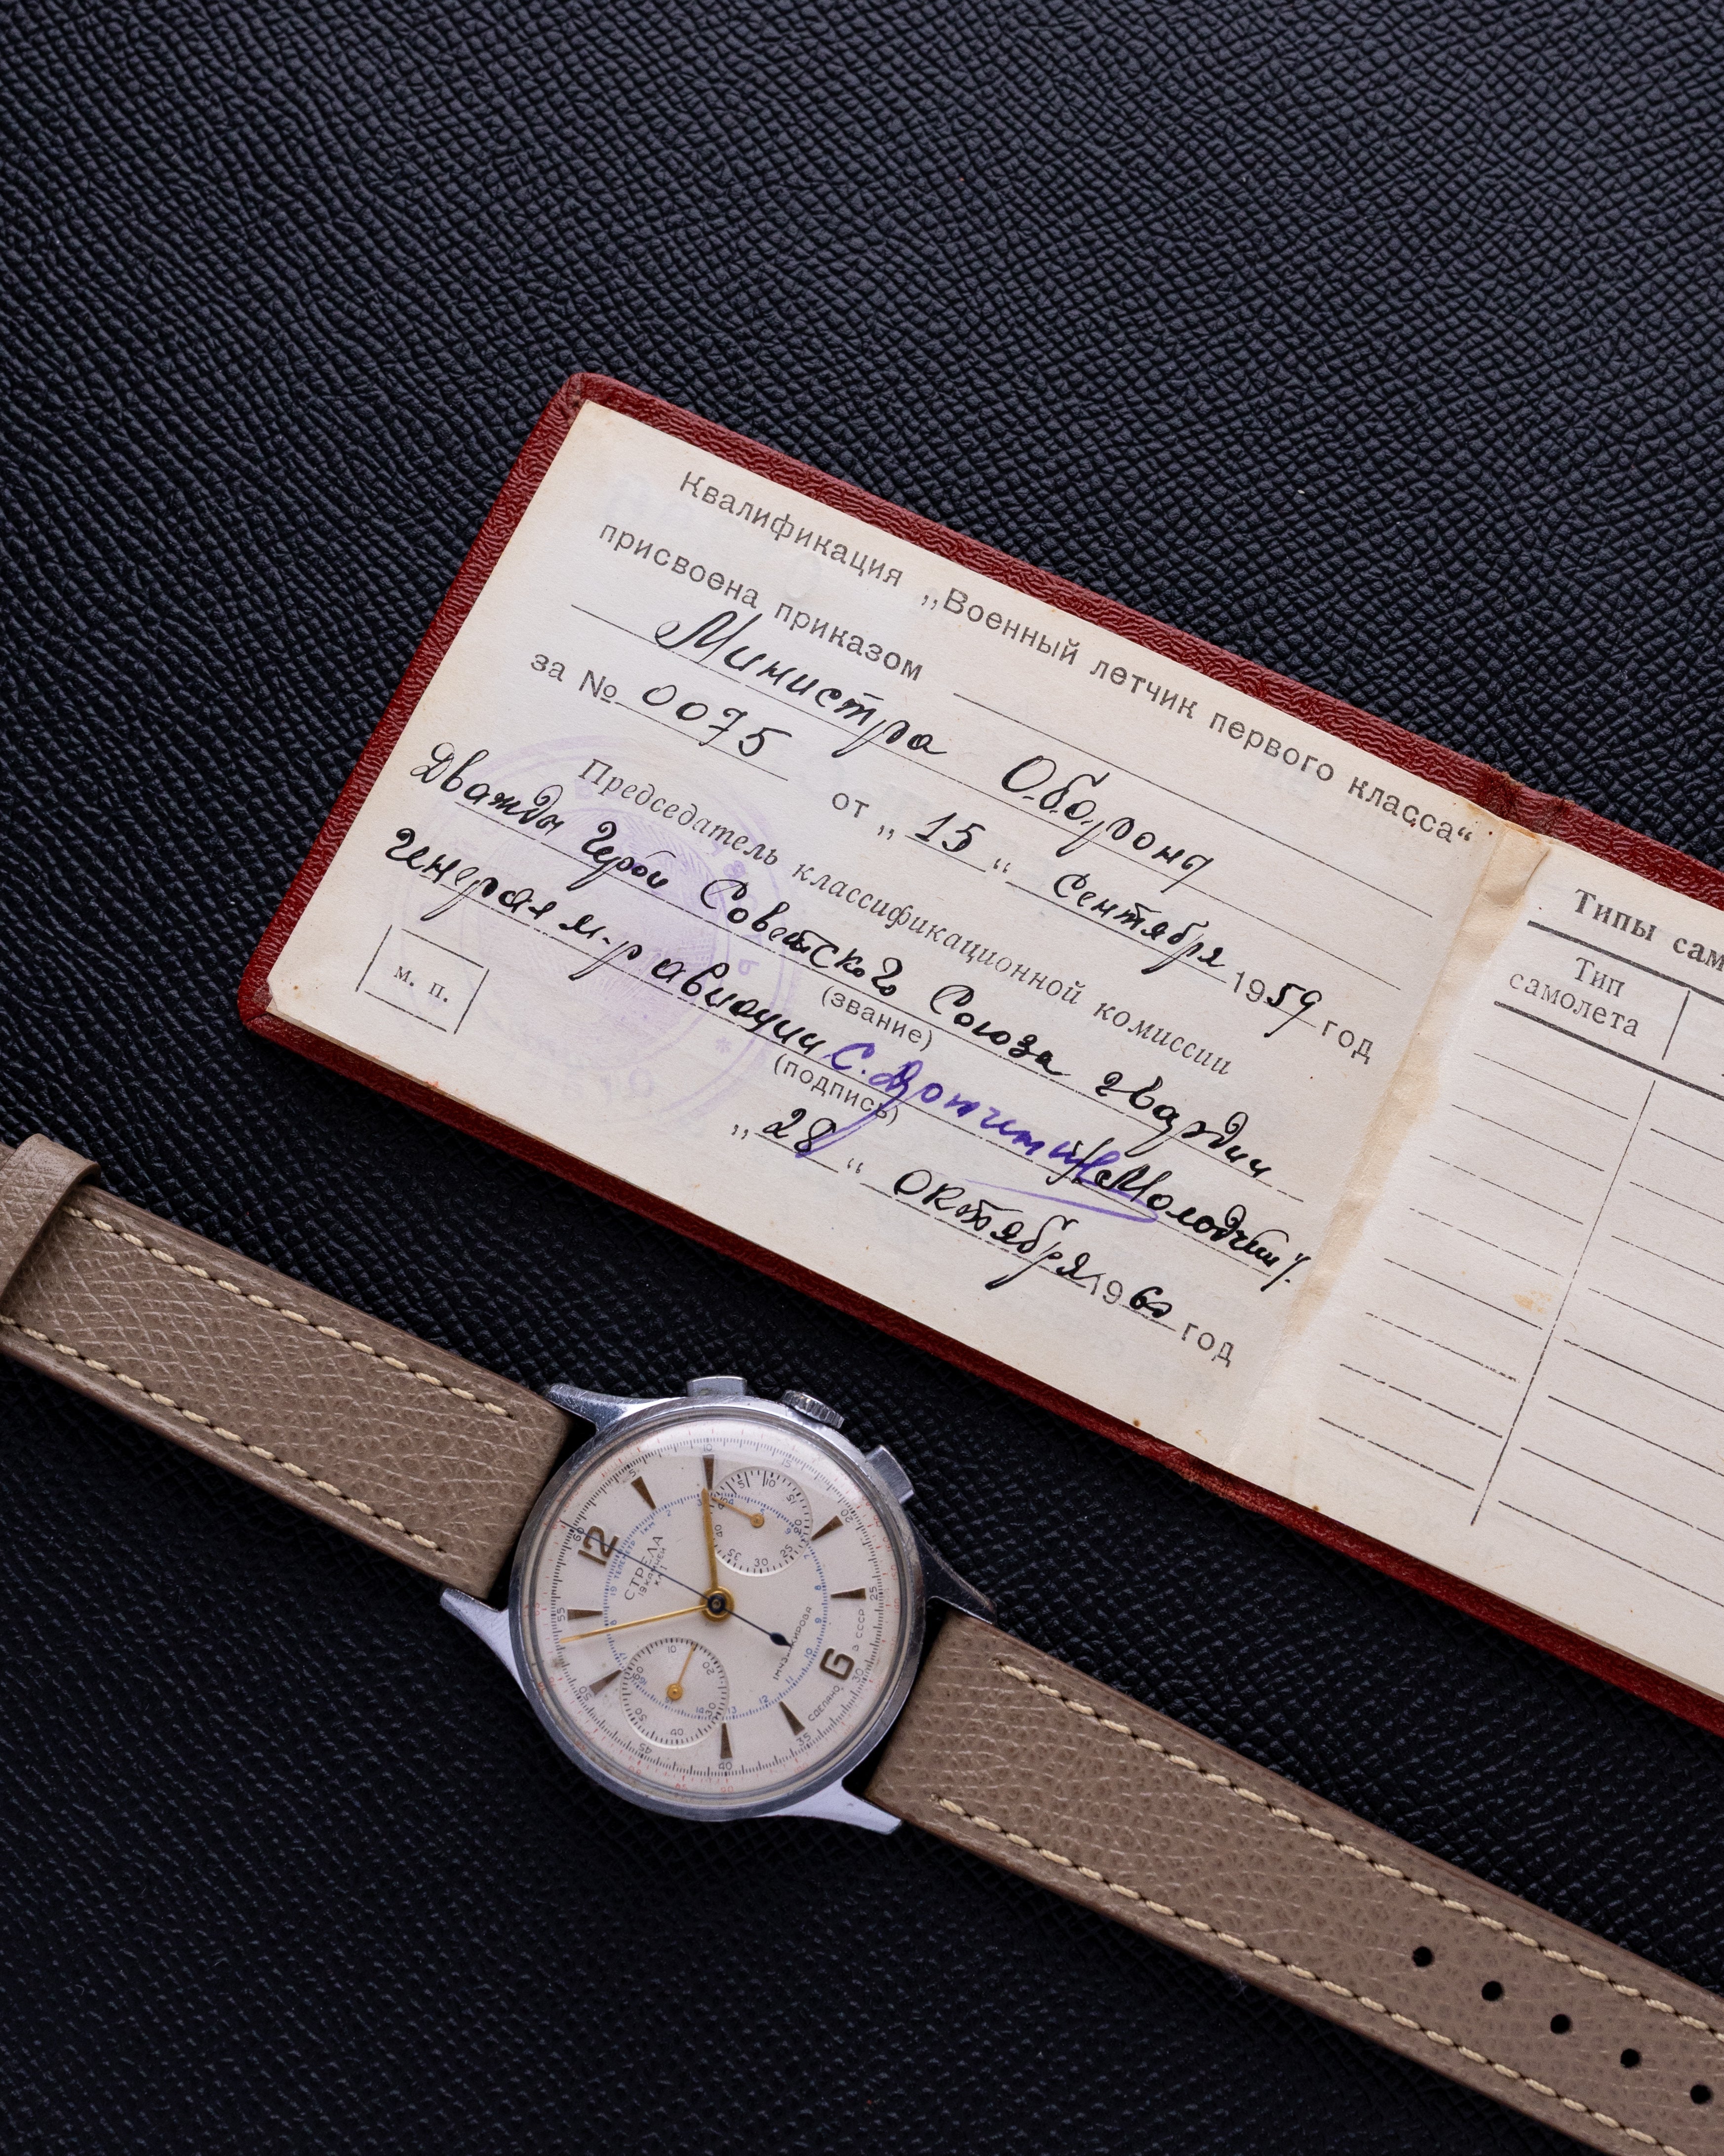 Квалификация „Военный летчик первого класса“
присвоена приказом
Министра Обороны
за № 0075 от „15“ Сентября 1959 год
Председатель классификационной комиссии
Дважды Герой Советского Союза гвардии
(звание)
генерал м-р авиации Молодчий
(подпись)
м. п.
„28“ Октября 1960 год
Типы сам
Тип
самолета
12
СТРЕЛА
19 КАМНЕЙ
КЛ 1
6
1МЧЗ КИРОВА
СДЕЛАНО В СССР